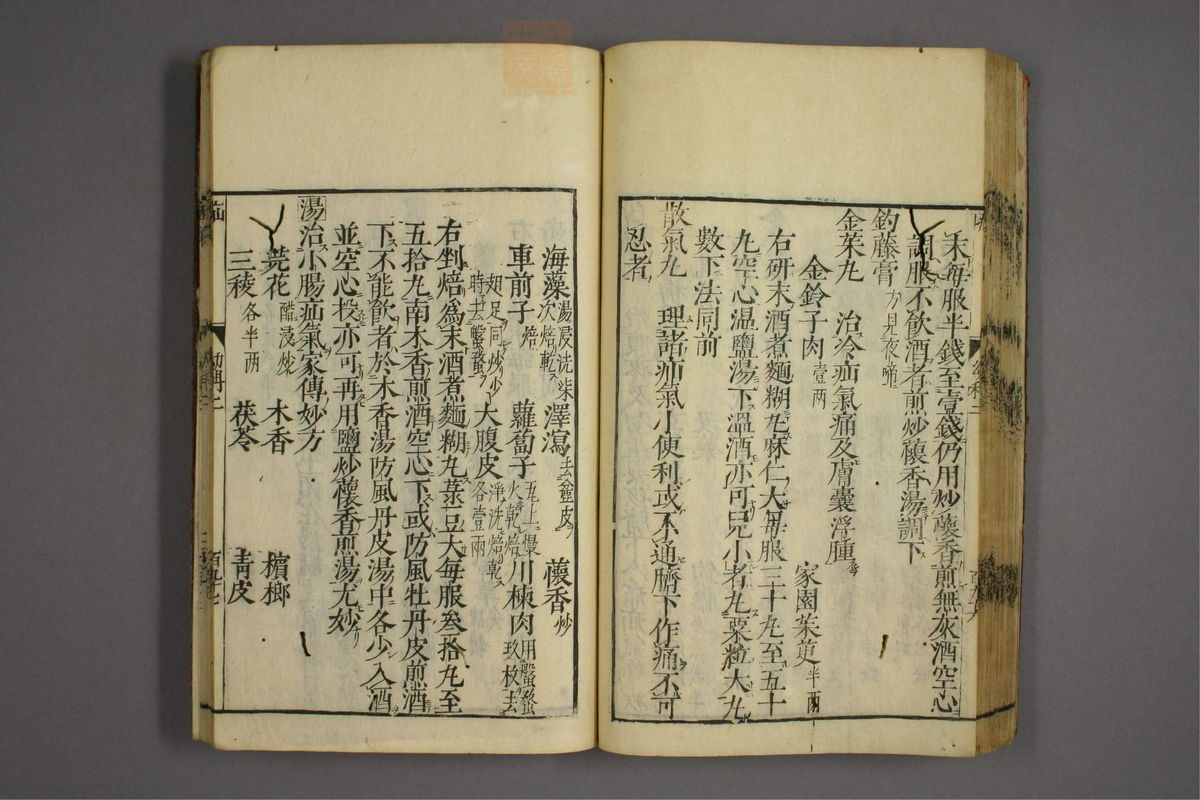 末每服半錢至壹錢仍用炒蘹香煎無灰酒空心
調服不飲酒者煎炒蘹香湯調下
釣藤膏 方見夜啼
金茱丸 治冷疝氣痛及膚囊浮腫
金鈴子肉 壹兩 家園茱萸 半兩
右研末酒煮麵糊丸麻仁大每服三十丸至五十
丸空心温鹽湯下温酒亦可兒小者丸粟粒大丸
數下法同前
散氣丸 理諸疝氣小便利或不通臍下作痛不可
忍者
海藻 湯浸洗柴次焙乾 澤瀉 去麄皮 蘹香 炒
車前子 焙 蘿蔔子 瓦上慢火乾焙 川楝肉 用螌蝥玖枚去
翅足同炒少時去螌蝥 大腹皮 淨洗焙乾各壹兩
右剉焙爲末酒煮麵糊丸菉豆大每服叁拾丸至
五拾丸南木香煎酒空心下或防風牡丹皮煎酒
下不能飲者於木香湯防風丹皮湯中各少入酒
並空心投亦可再用鹽炒蘹香煎湯尤妙
湯治小腸疝氣家傳妙方
芫花 醋浸炒 木香 檳榔
三稜 各半兩 茯苓 靑皮